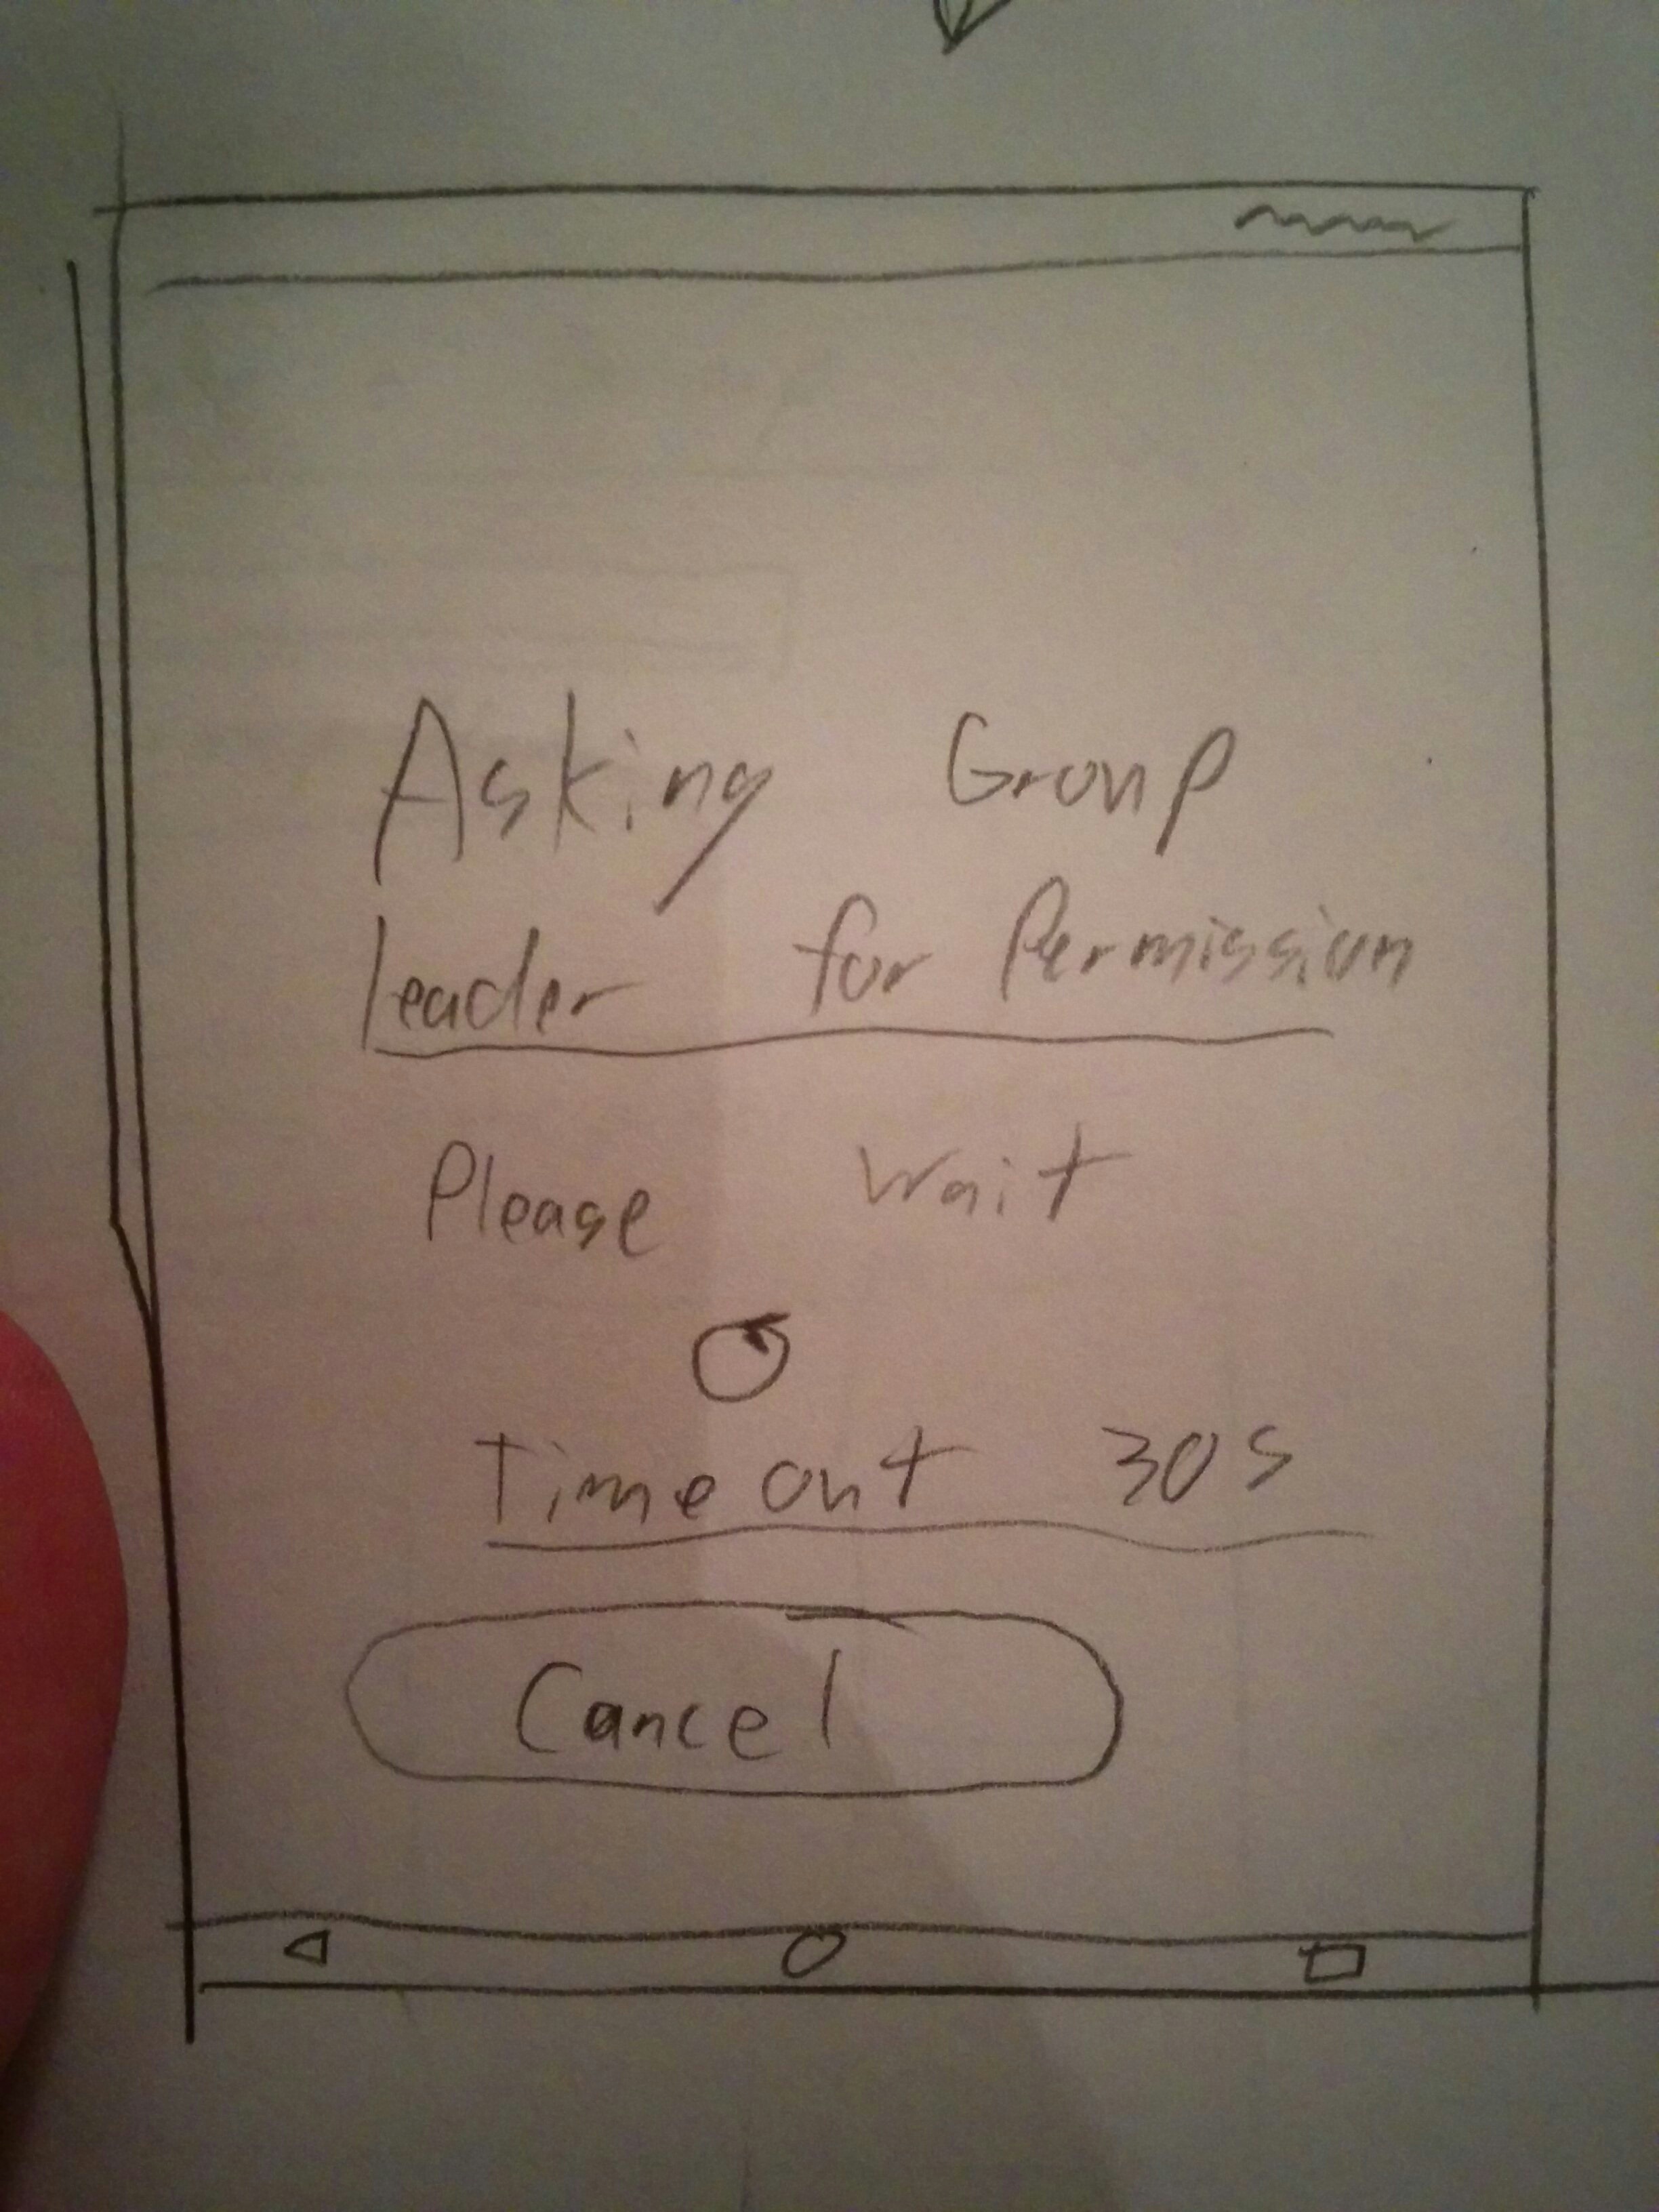 Asking Group
leader for Permission
Please wait
Time out 30s
Cancel